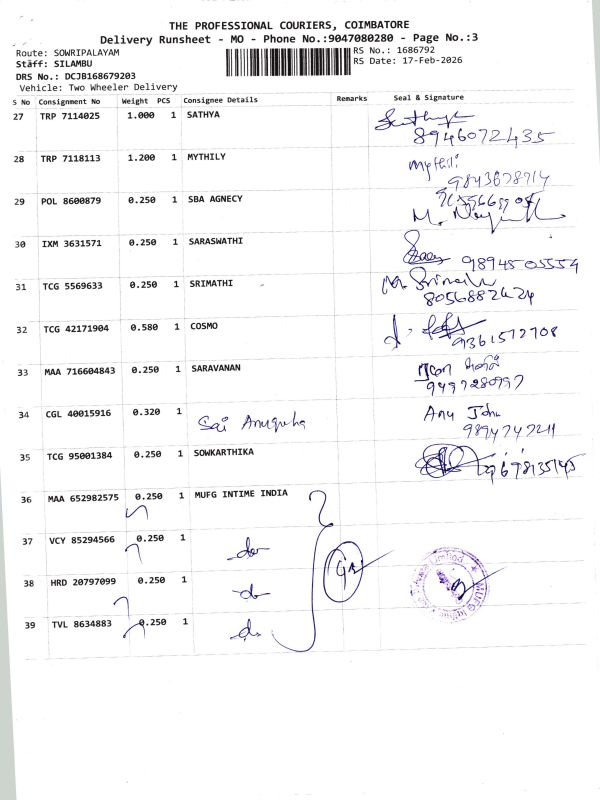 THE PROFESSIONAL COURIERS, COIMBATORE
Delivery Runsheet - MO - Phone No.:9047080280 - Page No.:3
Route: SOWRIPALAYAM RS No.: 1686792
Staff: SILAMBU RS Date: 17-Feb-2026
DRS No.: DCJB168679203
Vehicle: Two Wheeler Delivery
S No Consignment No Weight PCS Consignee Details Remarks Seal & Signature
27 TRP 7114025 1.000 1 SATHYA
8946072435
28 TRP 7118113 1.200 1 MYTHILY Mythili
29 POL 8600879 0.250 1 SBA AGNECY
30 IXM 3631571 0.250 1 SARASWATHI
9894505554
31 TCG 5569633 0.250 1 SRIMATHI M. Srimathi
8056882424
32 TCG 42171904 0.580 1 COSMO
9361572708
33 MAA 716604843 0.250 1 SARAVANAN
34 CGL 40015916 0.320 1 Sai Anugraha Anu
35 TCG 95001384 0.250 1 SOWKARTHIKA
36 MAA 652982575 0.250 1 MUFG INTIME INDIA
37 VCY 85294566 0.250 1 do
38 HRD 20797099 0.250 1 do
39 TVL 8634883 0.250 1 do